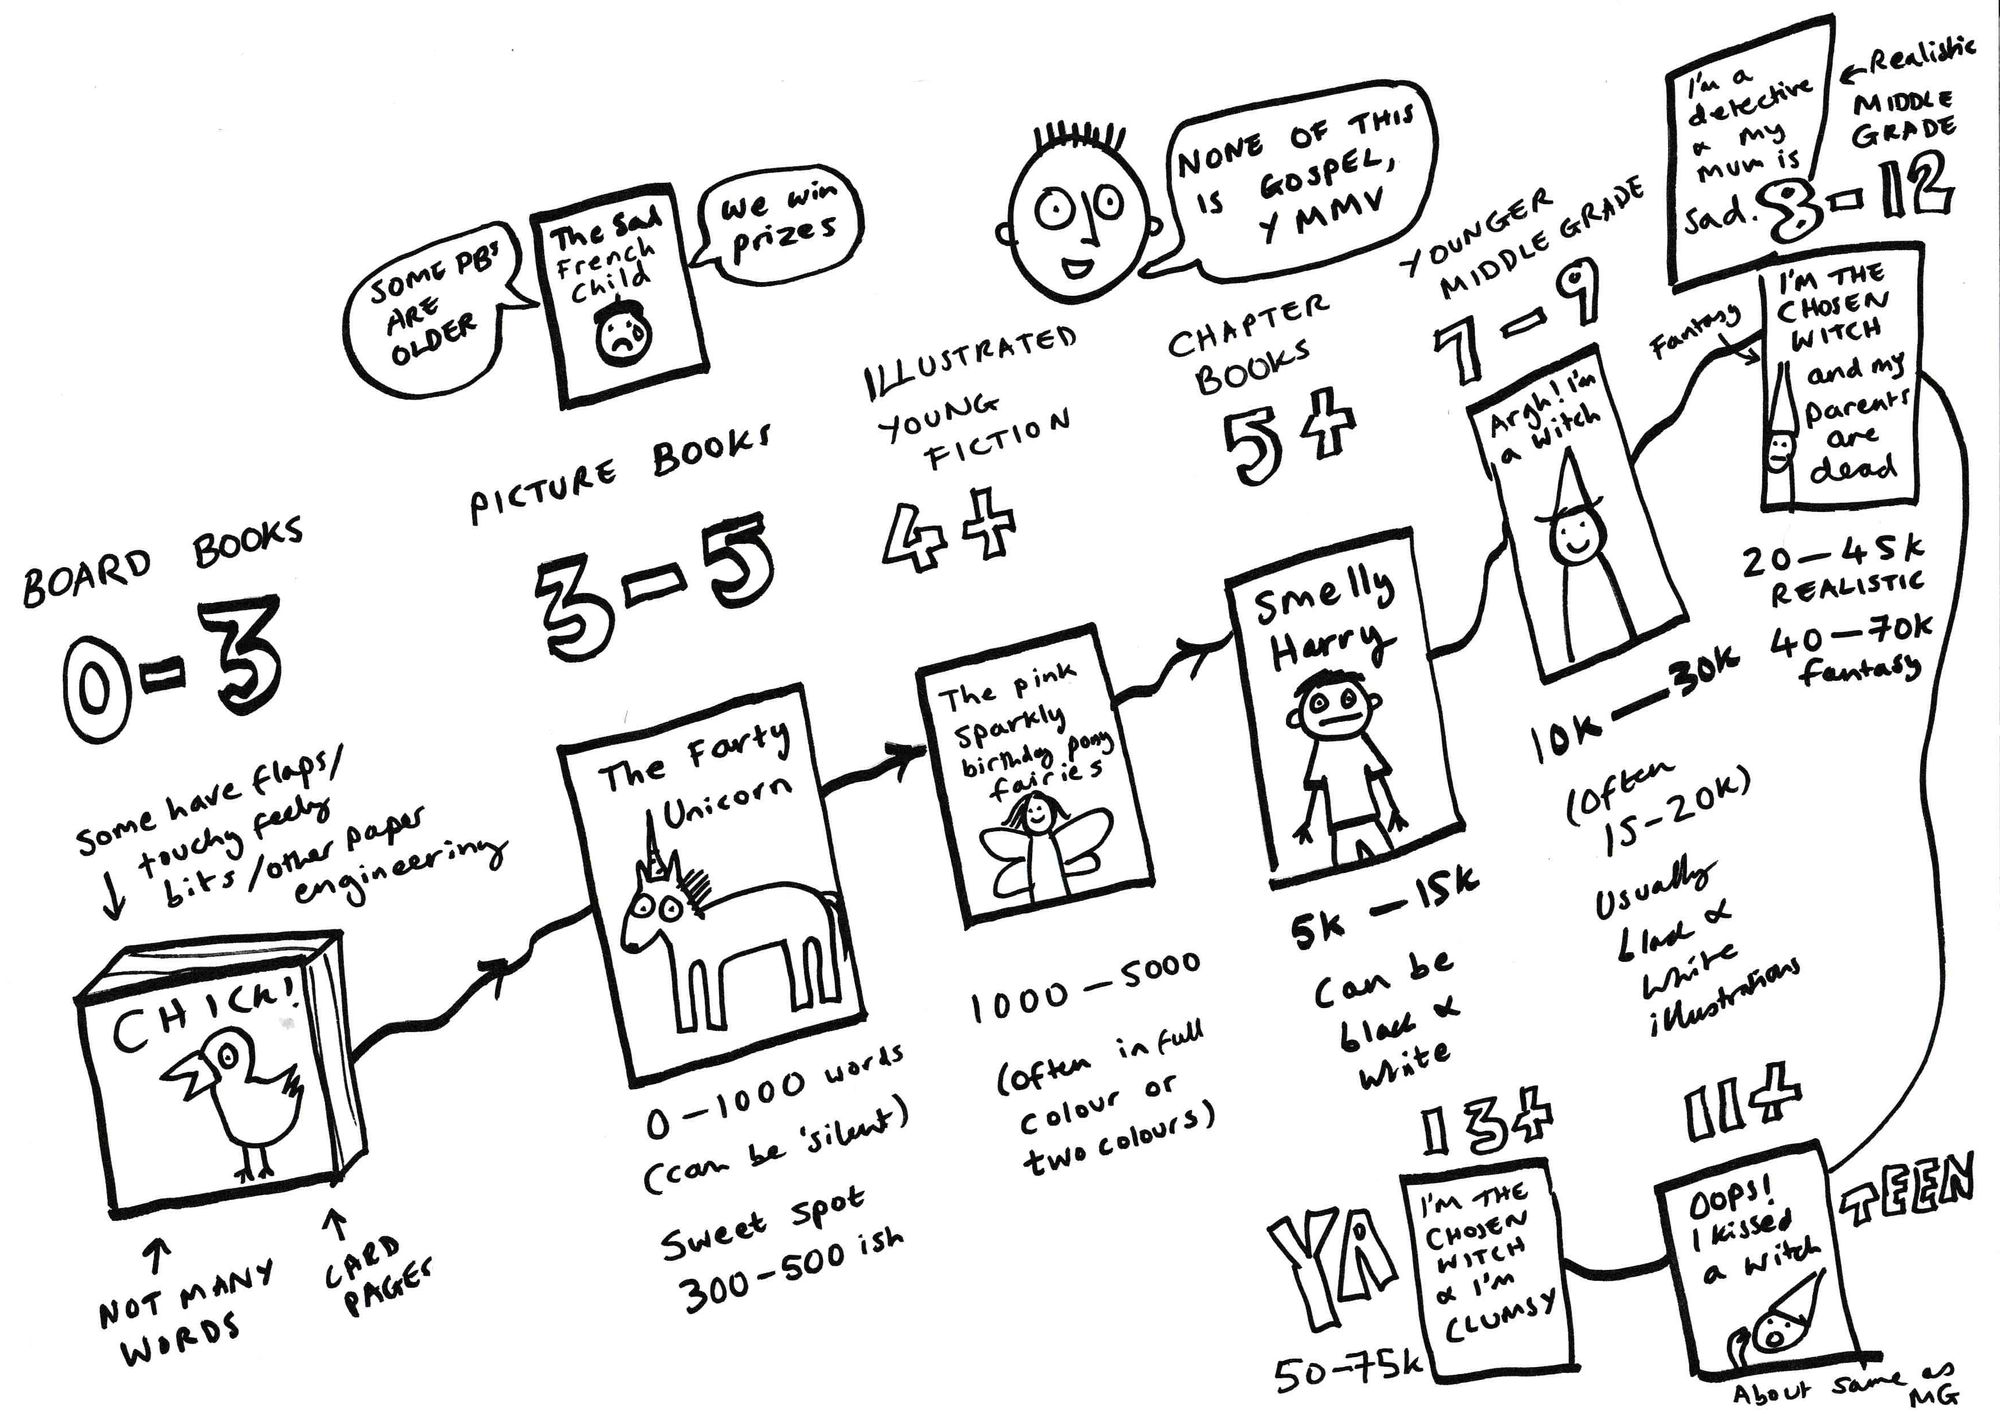 BOARD BOOKS
0-3
Some have flaps/
touchy feely
bits/other paper
engineering
CHICK!
NOT MANY
WORDS
CARD
PAGES
SOME PBs
ARE
OLDER
The Sad
French
Child
We win
prizes
PICTURE BOOKS
3-5
The Farty
Unicorn
0-1000 words
(can be 'silent')
Sweet spot
300-500 ish
ILLUSTRATED
YOUNG
FICTION
4+
The pink
sparkly
birthday pony
fairies
1000-5000
(often in full
colour or
two colours)
NONE OF THIS
IS GOSPEL,
YMMV
CHAPTER
BOOKS
5+
Smelly
Harry
5k-15k
Can be
black &
white
YOUNGER
MIDDLE GRADE
7-9
Argh! I'm
a witch
10k-30k
(often
15-20k)
Usually
black &
white
illustrations
I'm a
detective
& my
mum is
sad.
←Realistic
MIDDLE
GRADE
8-12
Fantasy
I'M THE
CHOSEN
WITCH
and my
parents
are
dead
20-45k
REALISTIC
40-70k
fantasy
11+
TEEN
OOPS!
I kissed
a witch
About same as
MG
13+
YA
I'M THE
CHOSEN
WITCH
& I'M
CLUMSY
50-75k